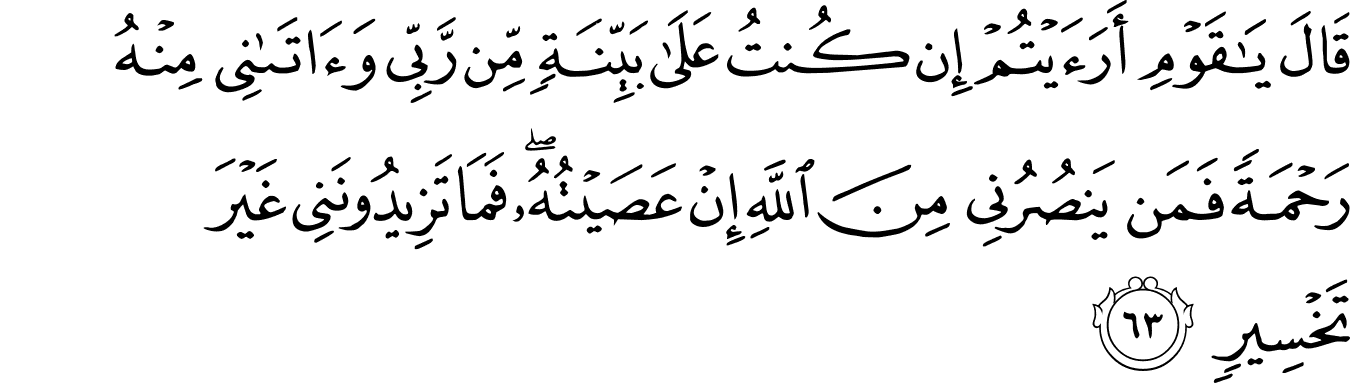 قَالَ يَـٰقَوْمِ أَرَءَيْتُمْ إِن كُنتُ عَلَىٰ بَيِّنَةٍ مِّن رَّبِّى وَءَاتَىٰنِى مِنْهُ
رَحْمَةً فَمَن يَنصُرُنِى مِنَ ٱللَّهِ إِنْ عَصَيْتُهُۥ ۖ فَمَا تَزِيدُونَنِى غَيْرَ
تَخْسِيرٍ ٦٣